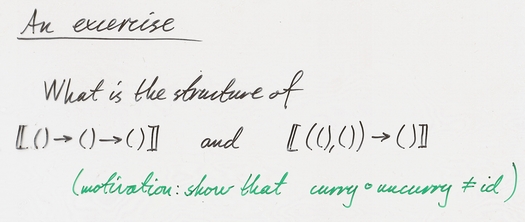 An exercise
What is the structure of
⟦()→()→()⟧ and ⟦((),())→()⟧
(motivation: show that curry∘uncurry ≠ id)